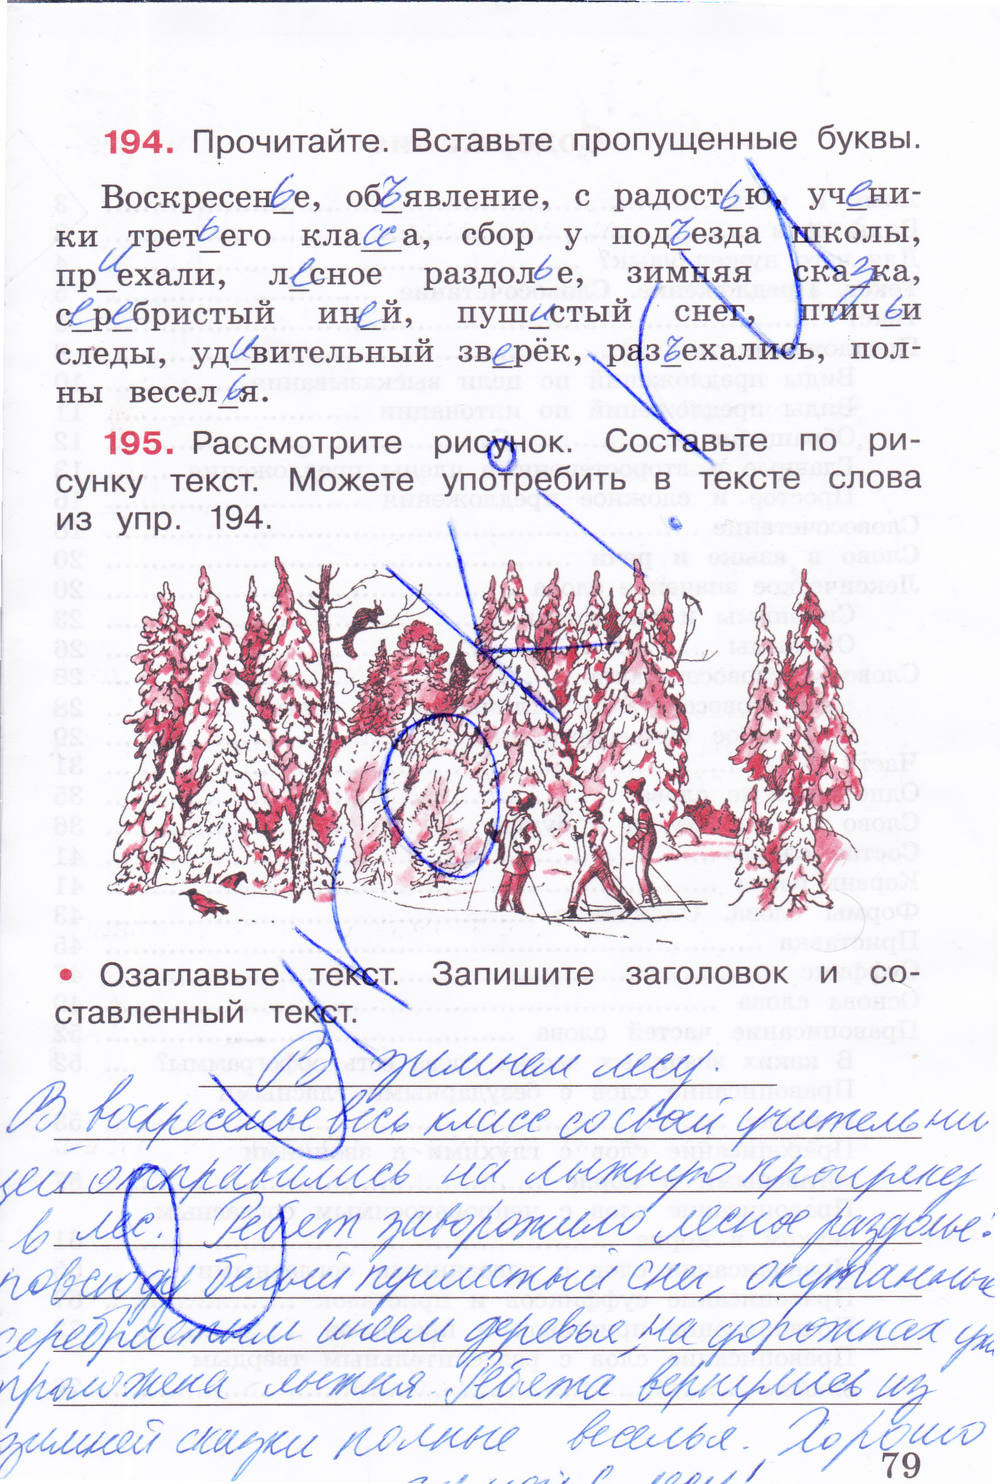 194. Прочитайте. Вставьте пропущенные буквы.
Воскресенье, объявление, с радостью, учени-
ки третьего класса, сбор у подъезда школы,
приехали, лесное раздолье, зимняя сказка,
серебристый иней, пушистый снег, птичьи
следы, удивительный зверёк, разъехались, пол-
ны веселья.
195. Рассмотрите рисунок. Составьте по ри-
сунку текст. Можете употребить в тексте слова
из упр. 194.
• Озаглавьте текст. Запишите заголовок и со-
ставленный текст.
В зимнем лесу.
В воскресенье весь класс со свой учительни
цей отправились на лыжную прогулку
в лес. Ребят заворожило лесное раздолье:
повсюду белый пушистый снег окутанные
серебристым инеем деревья, на дорожках уже
проложена лыжня. Ребята вернулись из
зимней сказки полные веселья. Хорошо
79